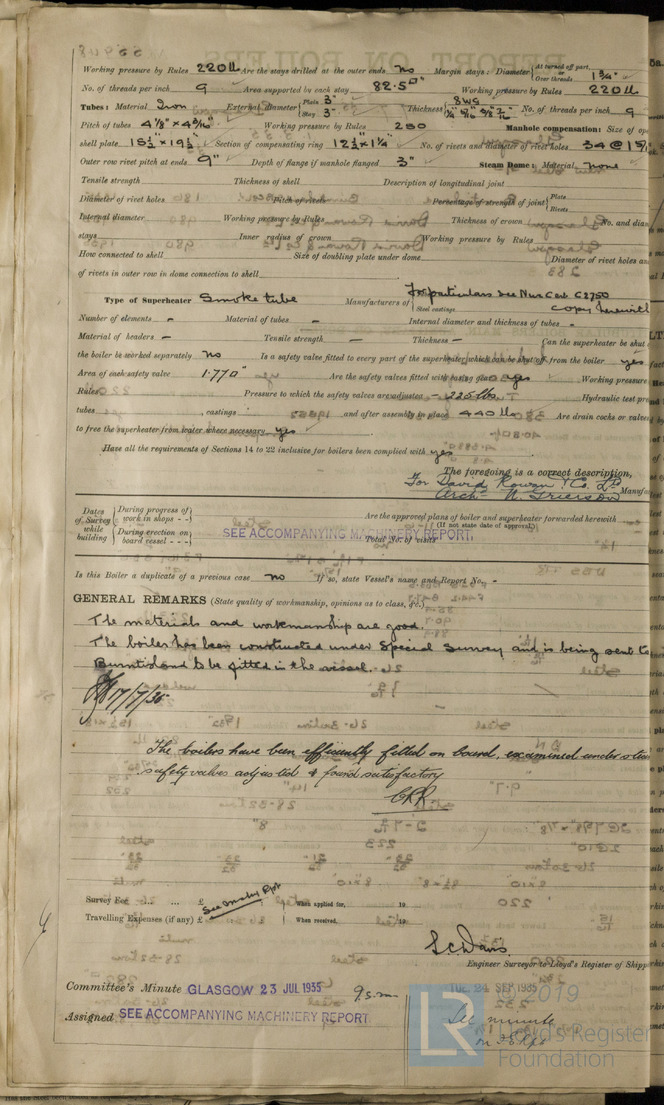 Working pressure by Rules 220 lb Are the stays drilled at the outer ends no Margin stays: Diameter { At turned off part, or Over threads 1¾"
No. of threads per inch 9 Area supported by each stay 82.5 □" Working pressure by Rules 220 lb
Tubes: Material Iron External diameter { Plain 3" Stay 3" Thickness { 8WG ¼" 5/16" 3/8" No. of threads per inch 9
Pitch of tubes 4⅛" x 4 3/16" Working pressure by Rules 250 Manhole compensation: Size of
shell plate 15½ x 19½ Section of compensating ring 12½ x 1¼" No. of rivets and diameter of rivet holes 34 @
Outer row rivet pitch at ends 9" Depth of flange if manhole flanged 3" Steam Dome: Material none
Tensile strength Thickness of shell Description of longitudinal joint
Diameter of rivet holes Pitch of rivets Percentage of strength of joint { Plate Rivets
Internal diameter Working pressure by Rules Thickness of crown No. and
stays Inner radius of crown Working pressure by Rules
How connected to shell Size of doubling plate under dome Diameter of rivet holes
of rivets in outer row in dome connection to shell
Type of Superheater Smoke tube Manufacturers of { For particulars see Nwc Cert C2750
Steel castings copy herewith
Number of elements - Material of tubes - Internal diameter and thickness of tubes -
Material of headers - Tensile strength - Thickness - Can the superheater be shut
the boiler be worked separately no Is a safety valve fitted to every part of the superheater which can be shut off from the boiler yes
Area of each safety valve 1.770" Are the safety valves fitted with easing gear yes Working pressure
Rules Pressure to which the safety valves are adjusted - 225 lbs. Hydraulic test
tubes castings and after assembly in place 440 lb Are drain cocks or valves
to free the superheater from water where necessary yes
Have all the requirements of Sections 14 to 22 inclusive for boilers been complied with yes
The foregoing is a correct description,
For David Rowan & Co. Ltd
Arch. N. Grierson
Dates of Survey while building { During progress of work in shops - - { During erection on board vessel - - -
SEE ACCOMPANYING MACHINERY REPORT.
Are the approved plans of boiler and superheater forwarded herewith
(If not state date of approval.)
Total No. of visits
Is this Boiler a duplicate of a previous case no If so, state Vessel's name and Report No. -
GENERAL REMARKS (State quality of workmanship, opinions as to class, &c.)
The materials and workmanship are good.
The boiler has been constructed under Special Survey and is being sent to
Burntisland to be fitted in the vessel.
17/7/35
The boilers have been efficiently fitted on board, examined under steam
safety valves adjusted & found satisfactory
CRR
Survey Fee ... ... £ See Mchy Rpt When applied for, 19
Travelling Expenses (if any) £ When received, 19
S.C. Davis.
Engineer Surveyor to Lloyd's Register of
Committee's Minute GLASGOW 23 JUL 1935
TUE. 24 SEP 1935
Assigned SEE ACCOMPANYING MACHINERY REPORT
See minute
© 2019
LR Lloyd's Register
Foundation